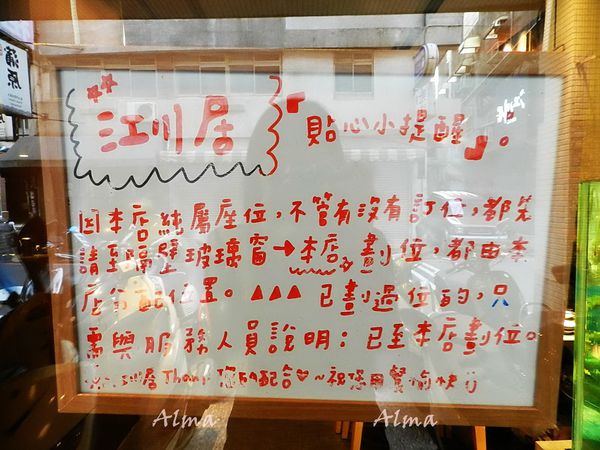 江川居 『貼心小提醒』。
因本店純屬座位,不管有沒有訂位,都笑
請至隔壁玻璃窗→本店劃位,都由本
店分配位置。▲▲▲已劃過位的,只
需與服務人員說明:已至本店劃位。
江川居 Thank 您的配合♡~祝您用餐愉快
蒲原
Alma Alma